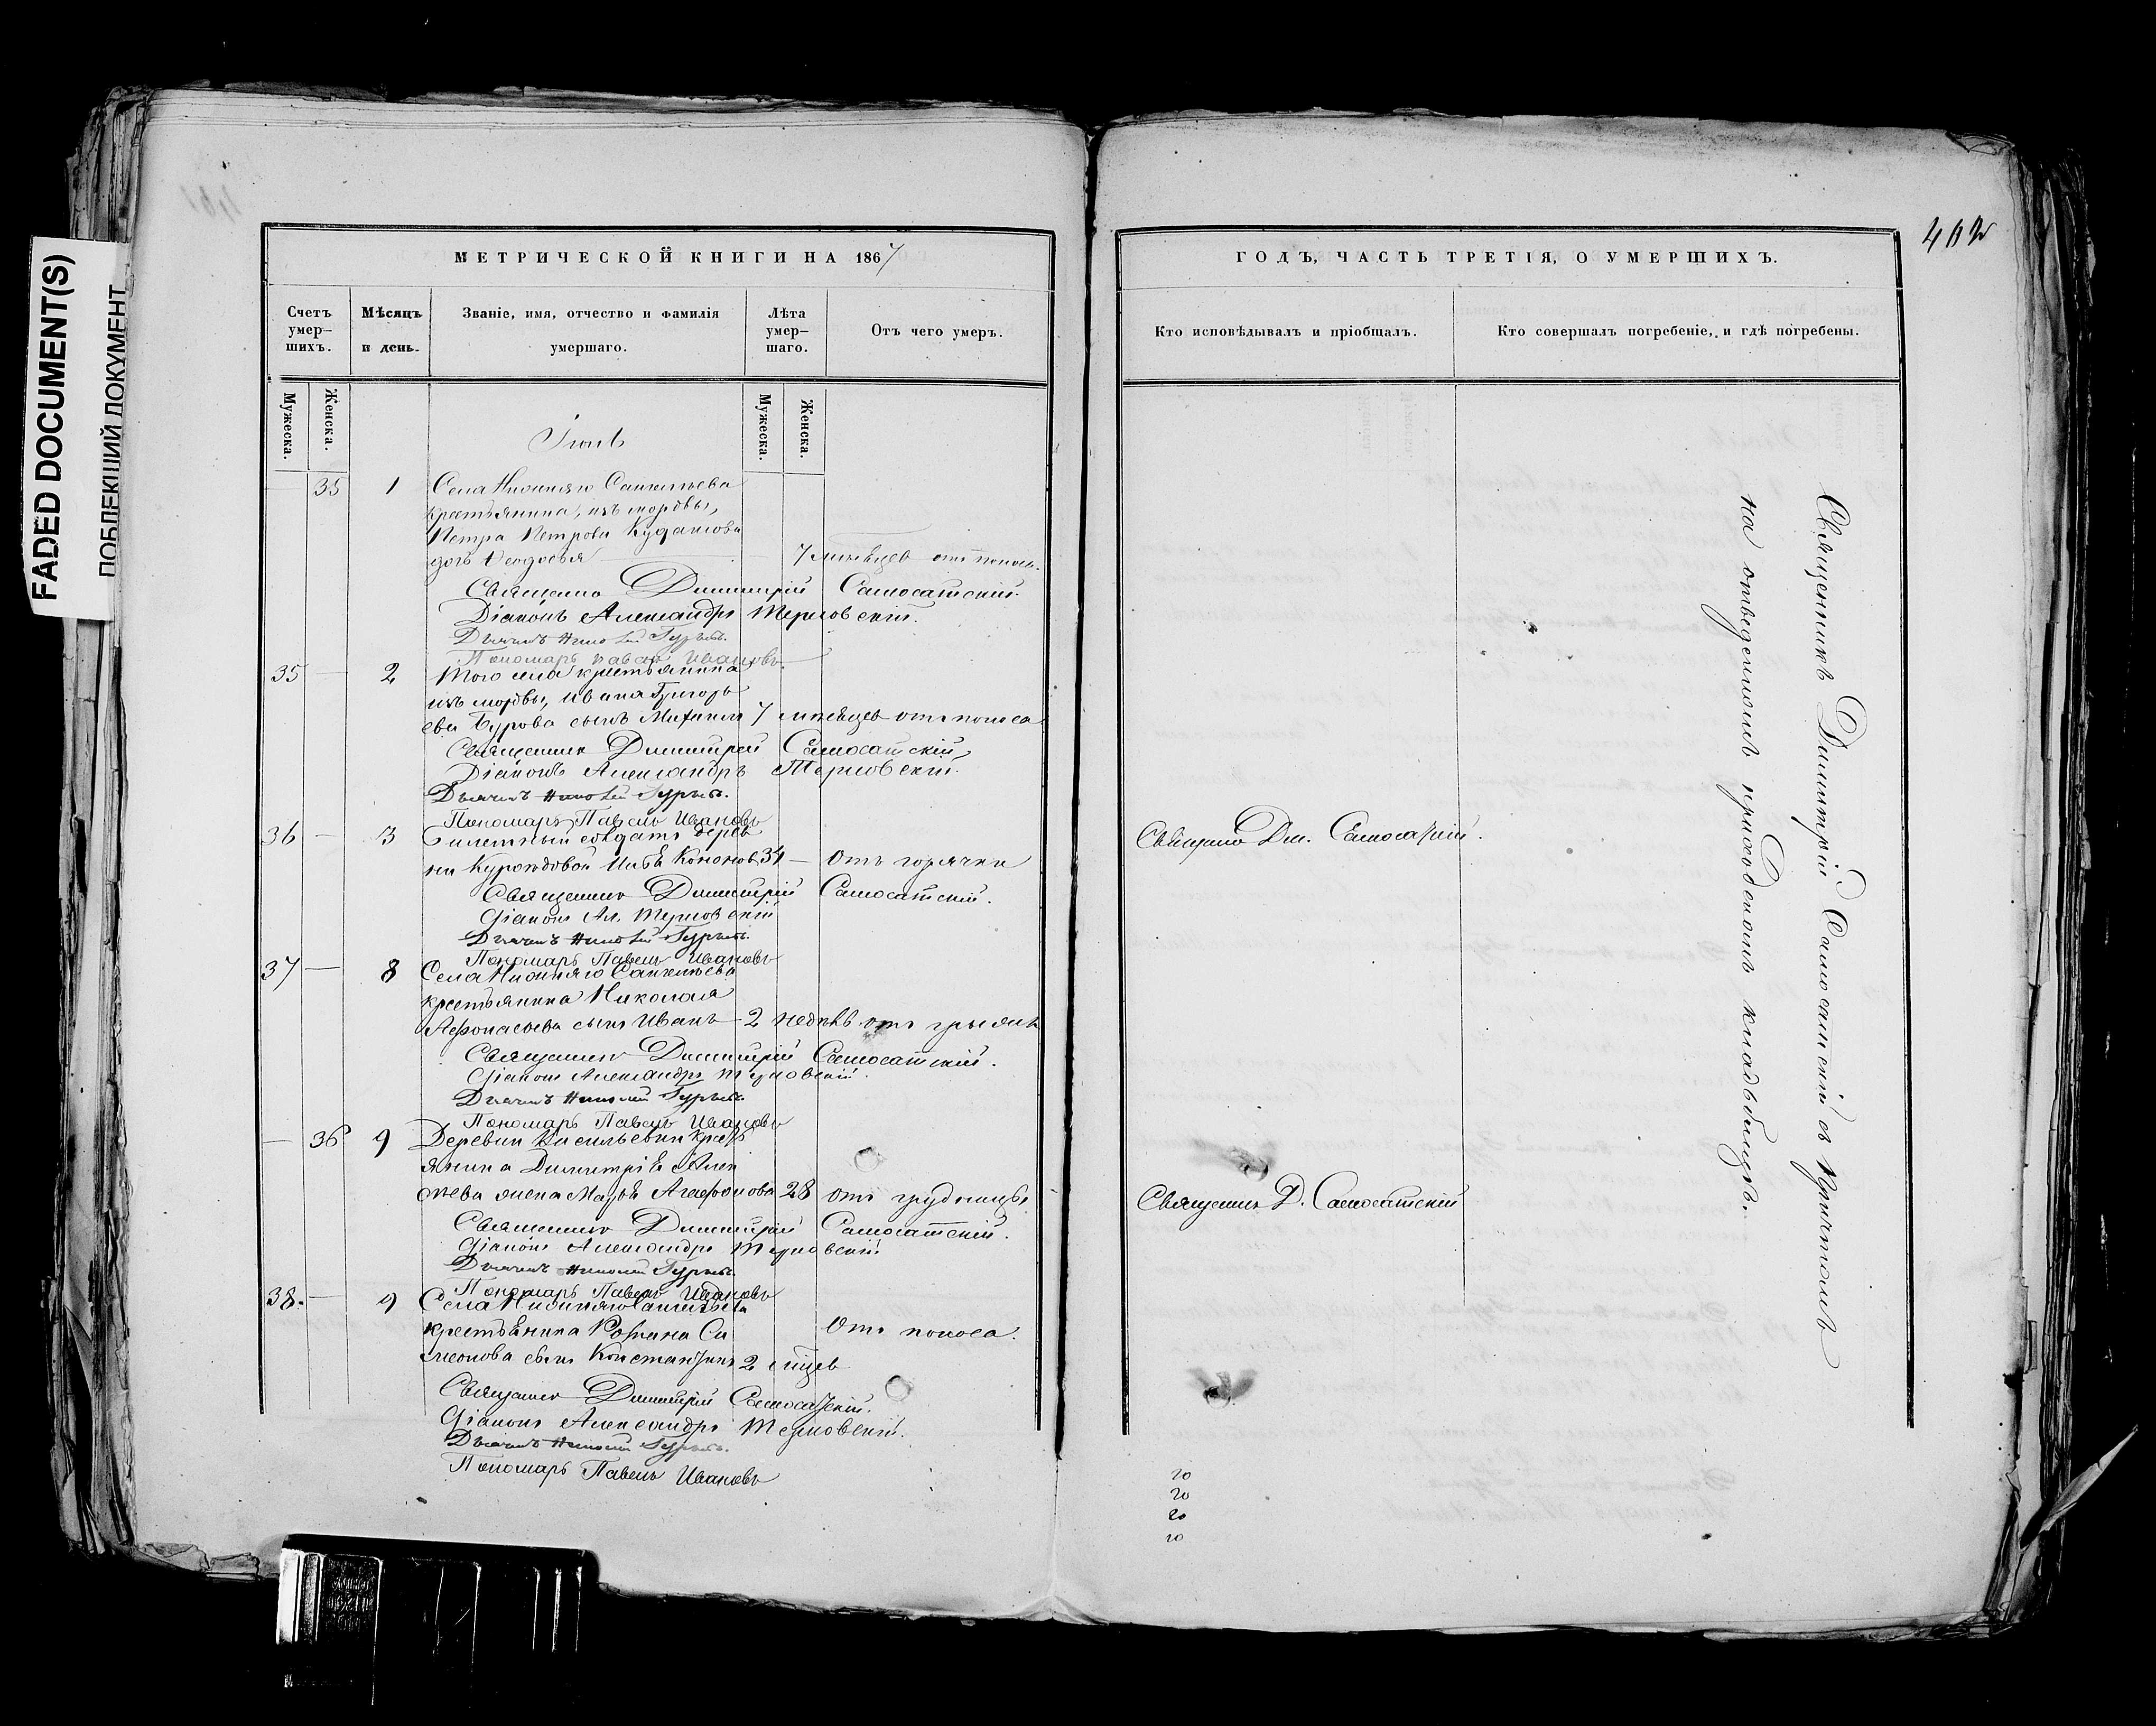 FADED DOCUMENT(S)
ПОБЛЕКШИЙ ДОКУМЕНТ
МЕТРИЧЕСКОЙ КНИГИ НА 1867
Счетъ умер-шихъ.
Мѣсяцъ и день.
Званіе, имя, отчество и фамилія умершаго.
Лѣта умер-шаго.
Отъ чего умеръ.
Мужеска.
Женска.
Мужеска.
Женска.
Іюль
35 1 Села Нижняго
крестьянина, изъ мордвы,
Петра Петрова
дочь Ѳеодосья 7 мѣсяцев отъ поноса.
Священно Димитрій Самосатскій.
Діаконъ Александръ Терновскій.
Дьячекъ Николай Гурьевъ.
Пономарь Павелъ Ивановъ.
35 2 Того села крестьянина
изъ мордвы, Ивана Григорь
ева Бурова сынъ Михаилъ 7 мѣсяцев отъ поноса
Священник Димитрій Самосатскій
Діаконъ Александръ Терновскій.
Дьячекъ Николай Гурьевъ.
Пономарь Павелъ Ивановъ
36 3 Билетный солдатъ дерев
ни Куроѣдовой Кононов 34 Отъ горячки
Священник Димитрій Самосатскій.
Діаконъ Ал. Терновскій
Дьячекъ Николай Гурьевъ.
Пономарь Павелъ Ивановъ
37 8 Села Нижняго
крестьянина Николая
Аѳонасьева сынъ Иванъ 2 недѣль отъ грыжи
Священник Димитрій Самосатскій.
Діаконъ Александръ Терновскій.
Дьячекъ Николай Гурьевъ
Пономарь Павелъ Ивановъ
36 9 Деревни Васильевки крест
янина Димитрія
жена Марья Агаѳонова 28 отъ грудницы
Священник Димитрій Самосатскій.
Діаконъ Александръ Терновскій
Дьячекъ Николай Гурьевъ.
Пономарь Павелъ Ивановъ
38. 9 Села Нижняго
крестьянина Романа Си Отъ поноса.
меонова сынъ Константинъ 2 мѣсев
Священник Димитрій Самосатскій.
Діаконъ Александръ Терновскій.
Дьячекъ Николай Гурьевъ.
Пономарь Павелъ Ивановъ
402
ГОДЪ, ЧАСТЬ ТРЕТІЯ, О УМЕРШИХЪ.
Кто исповѣдывалъ и пріобщалъ.
Кто совершалъ погребеніе, и гдѣ погребены.
Священно Дм. Самосатскій.
Священник Д. Самосатскій
Священникъ Димитрій Самосатскій съ Причтомъ
на отведенномъ приходскомъ кладбищѣ.
20
20
20
20